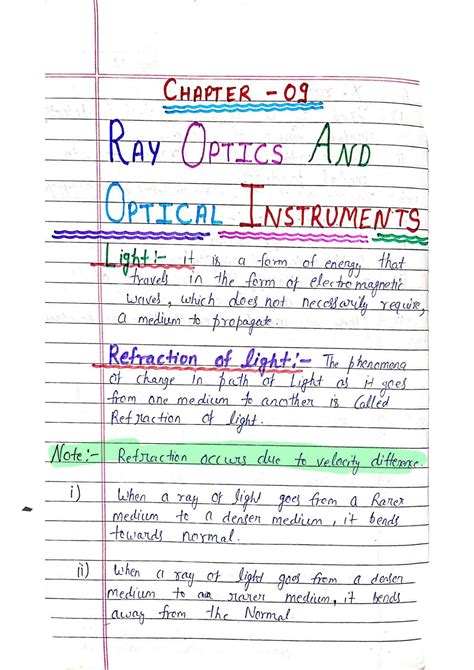 CHAPTER - 09
RAY OPTICS AND
OPTICAL INSTRUMENTS
Light:- it is a form of energy that
travels in the form of electromagnetic
waves, which does not necessarily require,
a medium to propagate.
Refraction of light:- The phenomena
of change in path of Light as it goes
from one medium to another is Called
Refraction of light.
Note:- Refraction occurs due to velocity difference.
i) When a ray of light goes from a Rarer
medium to a denser medium, it bends
towards normal.
ii) When a ray of light goes from a denser
medium to a rarer medium, it bends
away from the Normal